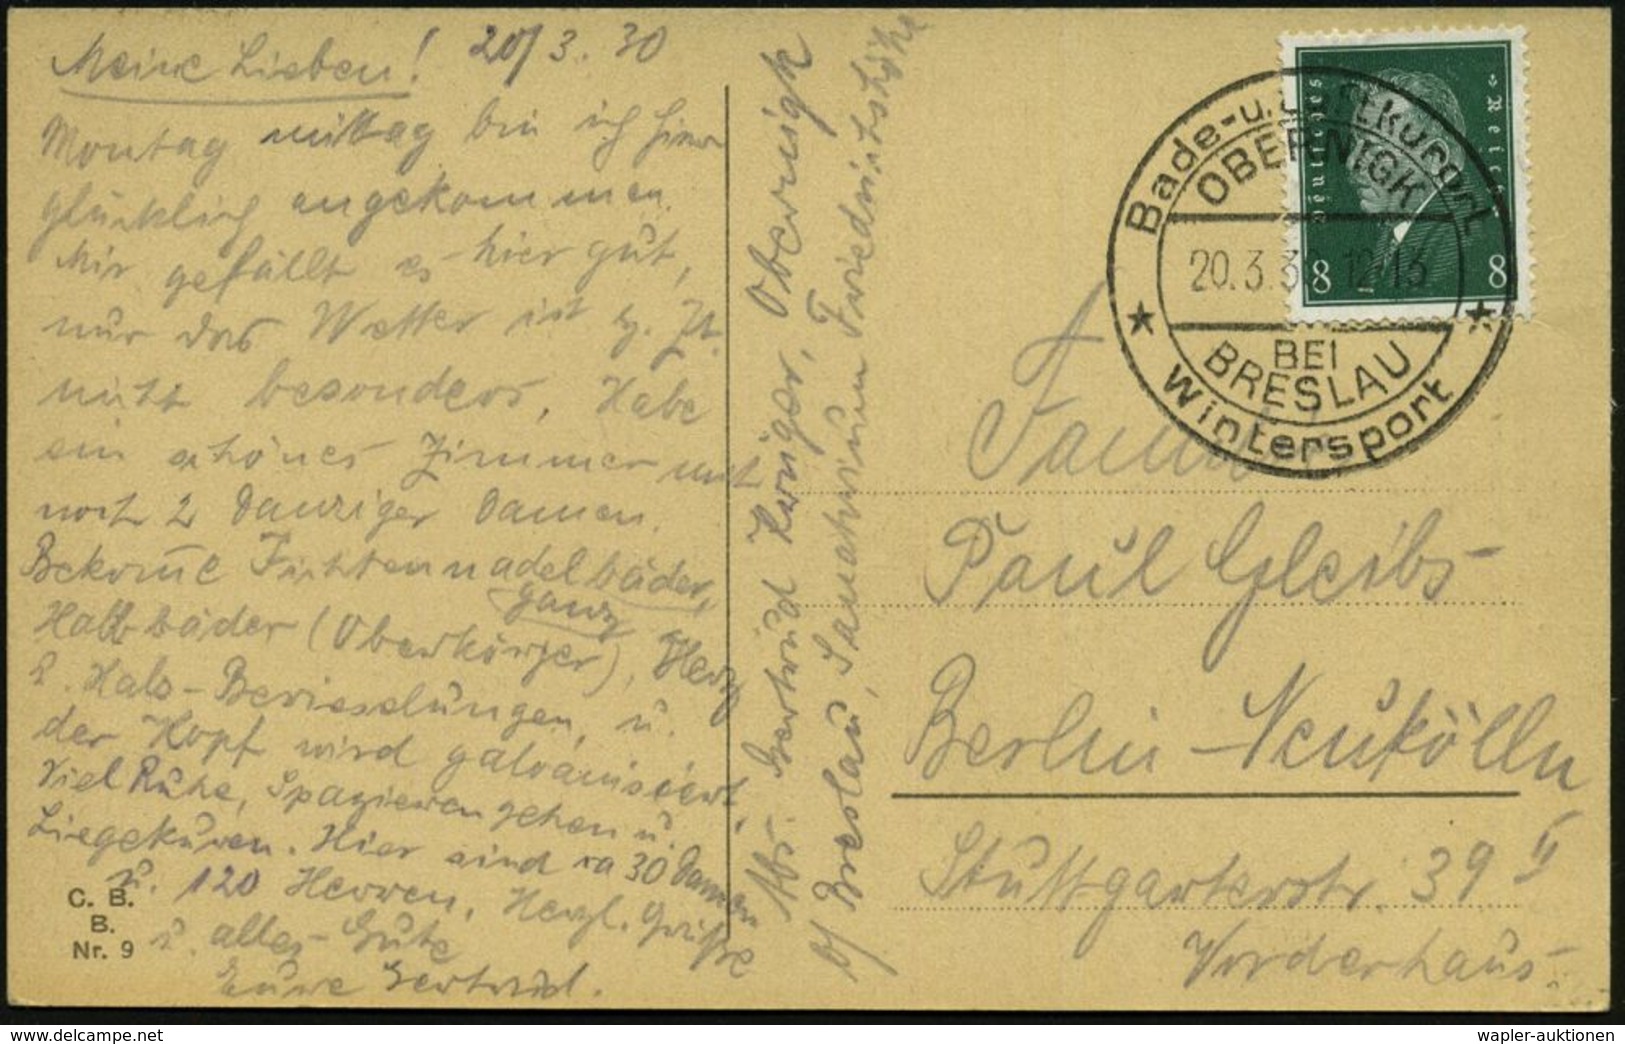 Meine Lieben! 20/3. 30
Montag mittag bin ich hier
glücklich angekommen.
Mir gefällt es hier gut,
nur das Wetter ist z. Zt.
nicht besonders, Habe
ein schönes Zimmer mit
noch 2 Danziger Damen.
Bekome Fichtennadelbäder,
ganz
Halbbäder (Oberkörper), Herz
u. Hals-Berieselungen, u.
der Kopf wird galvanisiert,
viel Ruhe, Spazierengehen u.
Liegekuren. Hier sind ca 30 Damen
u. 120 Herren. Herzl. Grüße
u. alles Gute
Eure Gertrud.
C. B.
B.
Nr. 9
Abs. Gertrud Krüger, Obernigk
b/ Breslau, Sanatorium Friedrichshöhe
Deutsches Reich
8 8
Bade-u. Luftkurort
OBERNIGK
20.3.3 12-13
BEI
BRESLAU
Wintersport
Familie
Paul Gleibs
Berlin-Neukölln
Stuttgarterstr. 39 II
Vorderhaus.
wapler-auktionen